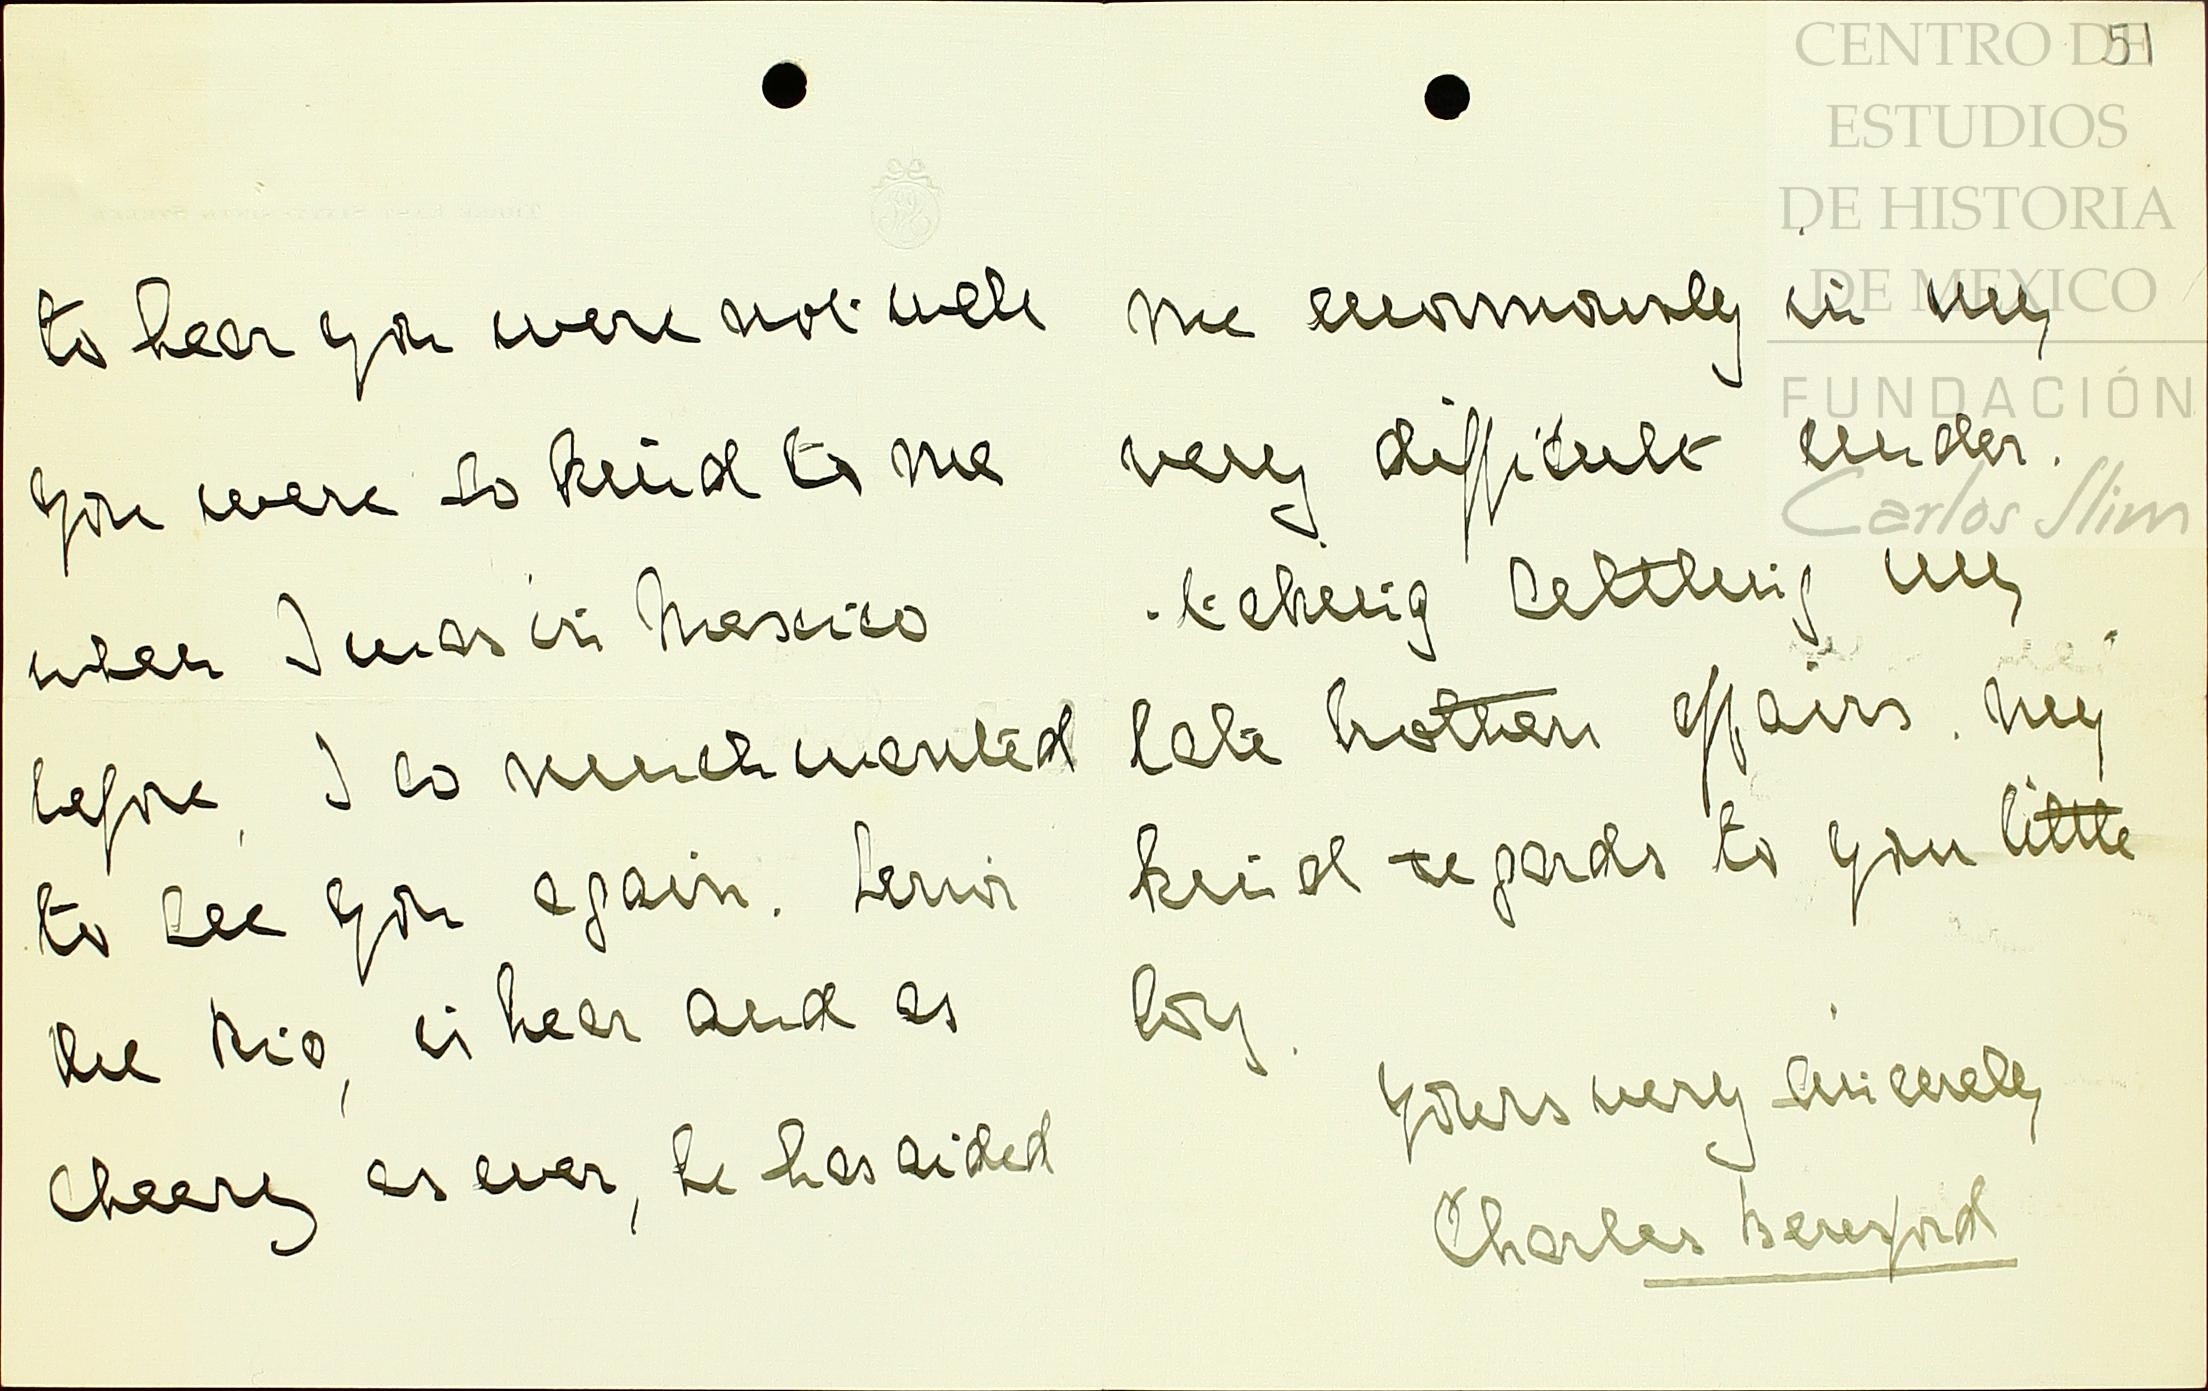 51
to hear you were not well
you were so kind to me
when I was in Mexico
before, I so much wanted
to see you again. Senor
del Rio, is hear and as
cheery as ever, he has aided
me enormously in my
very difficult under.
.taking settling my
late brothers affairs. My
kind regards to your little
boy.
Yours very sincerely
Charles Beresford
CENTRO DE
ESTUDIOS
DE HISTORIA
DE MEXICO
FUNDACIÓN
Carlos Slim